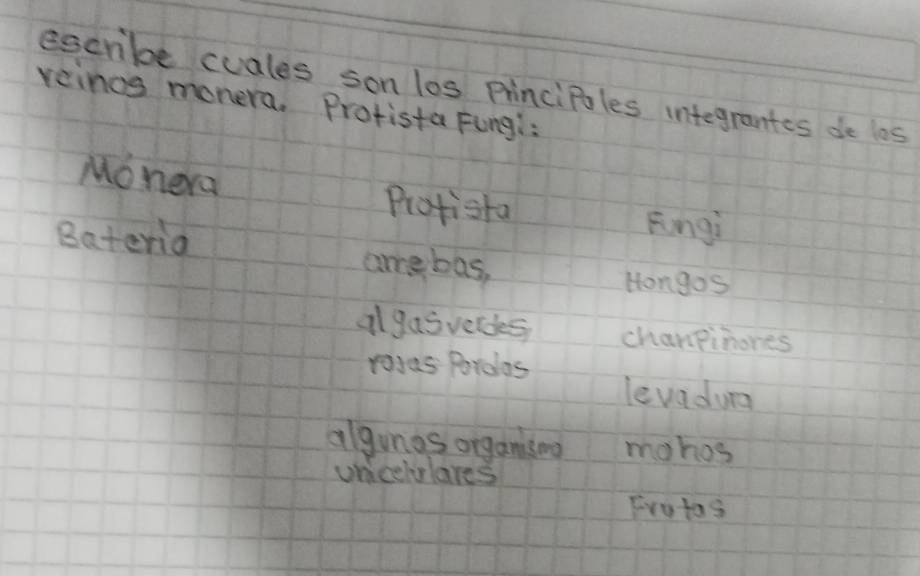 escribe cuales son los principales integrantes de los
reinos monera. Protista Fungi:
Mónera
Protista
Fungi
Bateria
amebas,
Hongos
algas verdes,
chanpiñones
rojas Pardas
levadura
algunos organismo
mohos
unicelulares
Frutos